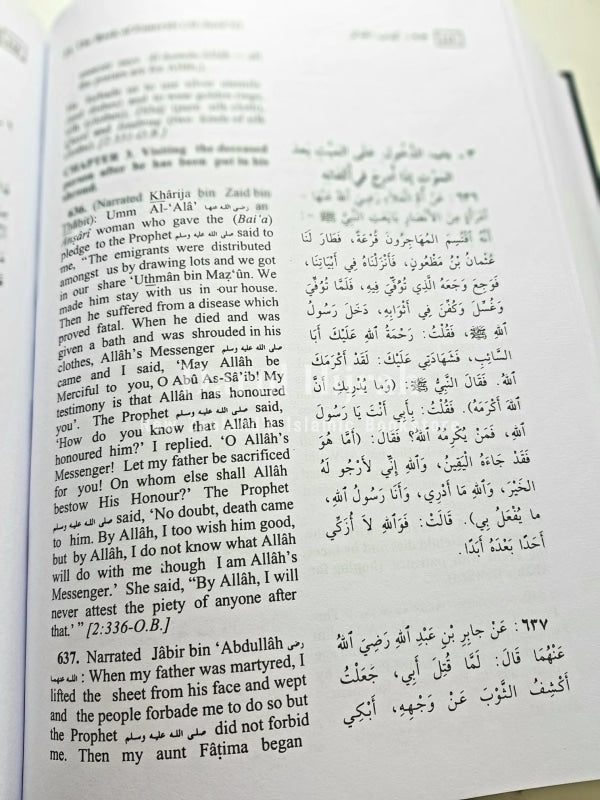 CHAPTER 3. Visiting the deceased
person after he has been put in his
shroud.
636. (Narrated Khârija bin Zaid bin
Thâbit): Umm Al-'Alâ' رضي الله عنها an
Ansârî woman who gave the (Bai'a)
pledge to the Prophet صلى الله عليه وسلم said to
me, "The emigrants were distributed
amongst us by drawing lots and we got
in our share 'Uthmân bin Maz'ûn. We
made him stay with us in our house.
Then he suffered from a disease which
proved fatal. When he died and was
given a bath and was shrouded in his
clothes, Allâh's Messenger صلى الله عليه وسلم
came and I said, 'May Allâh be
Merciful to you, O Abû As-Sâ'ib! My
testimony is that Allâh has honoured
you'. The Prophet صلى الله عليه وسلم said,
'How do you know that Allâh has
honoured him?' I replied. 'O Allâh's
Messenger! Let my father be sacrificed
for you! On whom else shall Allâh
bestow His Honour?' The Prophet
صلى الله عليه وسلم said, 'No doubt, death came
to him. By Allâh, I too wish him good,
but by Allâh, I do not know what Allâh
will do with me though I am Allâh's
Messenger.' She said, "By Allâh, I will
never attest the piety of anyone after
that.' " [2:336-O.B.]
637. Narrated Jâbir bin 'Abdullâh رضي
الله عنهما : When my father was martyred, I
lifted the sheet from his face and wept
and the people forbade me to do so but
the Prophet صلى الله عليه وسلم did not forbid
me. Then my aunt Fâṭima began
٣ـ باب الدُّخُولِ عَلَى المَيِّتِ بَعْدَ
المَوْتِ إِذَا أُدْرِجَ فِي أَكْفَانِهِ
٦٣٦ : عَنْ أُمِّ العَلاَءِ رَضِيَ اللهُ عَنْهَا ـ
امْرَأَةٍ مِنَ الأَنْصَارِ بَايَعَتِ النَّبِيَّ ﷺ ـ :
أَنَّهُ اقْتُسِمَ المُهَاجِرُونَ قُرْعَةً، فَطَارَ لَنَا
عُثْمَانُ بْنُ مَظْعُونٍ، فَأَنْزَلْنَاهُ فِي أَبْيَاتِنَا،
فَوَجِعَ وَجَعَهُ الَّذِي تُوُفِّيَ فِيهِ، فَلَمَّا تُوُفِّيَ
وَغُسِّلَ وَكُفِّنَ فِي أَثْوَابِهِ، دَخَلَ رَسُولُ
اللهِ ﷺ، فَقُلْتُ: رَحْمَةُ اللهِ عَلَيْكَ أَبَا
السَّائِبِ، فَشَهَادَتِي عَلَيْكَ: لَقَدْ أَكْرَمَكَ
اللهُ. فَقَالَ النَّبِيُّ ﷺ: (وَمَا يُدْرِيكِ أَنَّ
اللهَ أَكْرَمَهُ). فَقُلْتُ: بِأَبِي أَنْتَ يَا رَسُولَ
اللهِ، فَمَنْ يُكْرِمُهُ اللهُ؟ فَقَالَ: (أَمَّا هُوَ
فَقَدْ جَاءَهُ الْيَقِينُ، وَاللهِ إِنِّي لأَرْجُو لَهُ
الْخَيْرَ، وَاللهِ مَا أَدْرِي، وَأَنَا رَسُولُ اللهِ،
ما يُفْعَلُ بِي). قَالَتْ: فَوَاللهِ لاَ أُزَكِّي
أَحَدًا بَعْدَهُ أَبَدًا.
٦٣٧ : عَنْ جابِرِ بْنِ عَبْدِ اللهِ رَضِيَ اللهُ
عَنْهُمَا قَالَ: لَمَّا قُتِلَ أَبِي، جَعَلْتُ
أَكْشِفُ الثَّوْبَ عَنْ وَجْهِهِ، أَبْكِي